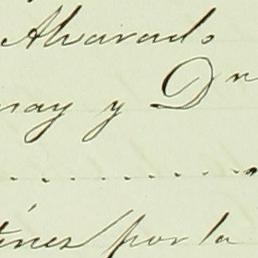 Alvarado
nay y Dn
.............
tines por la